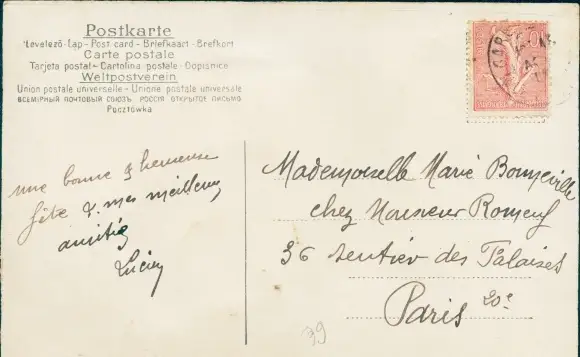 Postkarte
Levelező-Lap - Post card - Briefkaart - Brefkort
Carte postale
Tarjeta postal - Cartolina postale - Dopisnice
Weltpostverein
Union postale universelle - Unione postale universale
ВСЕМІРНЫЙ ПОЧТОВЫЙ СОЮЗЪ РОССІЯ ОТКРЫТОЕ ПИСЬМО
Pocztówka
une bonne & heureuse
fête & mes meilleurs
amitiés
Lucien
Mademoiselle Marie Bonneville
chez Monsieur Romeuf
36 sentier des Falaises
Paris 20e
39
10